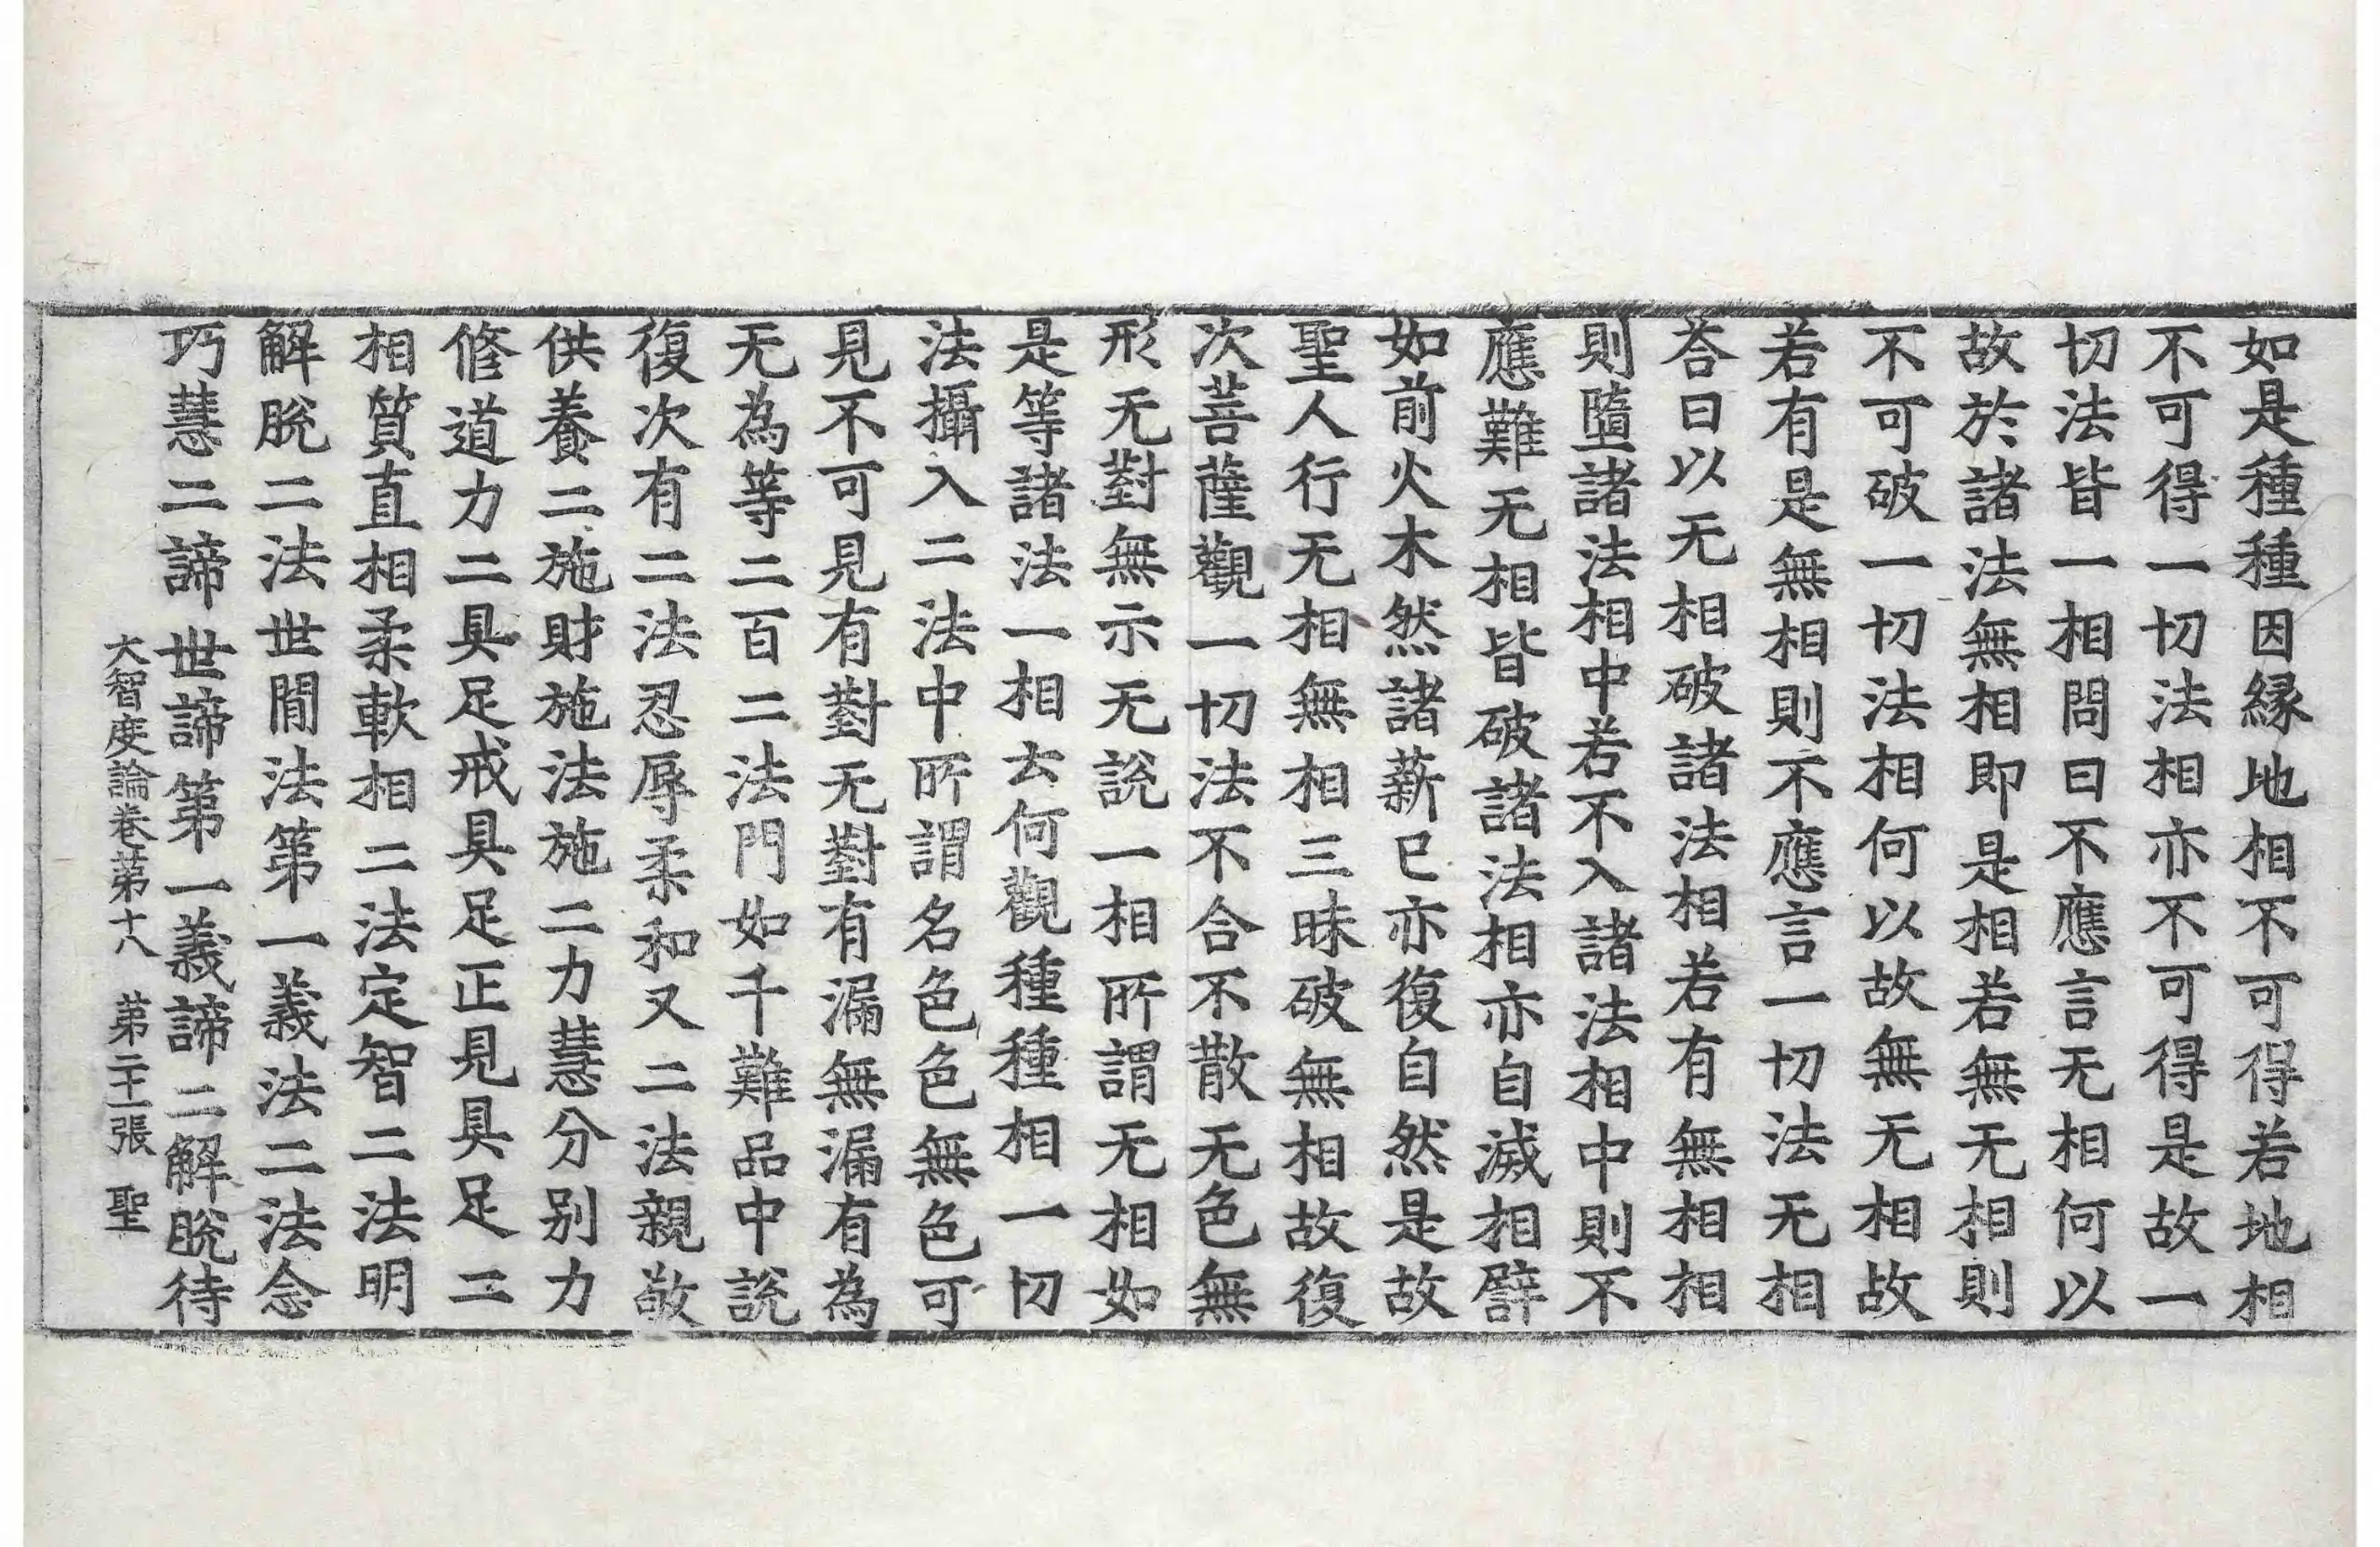 如是種種因縁地相不可得若地相
不可得一切法相亦不可得是故一
切法皆一相問曰不應言无相何以
故於諸法無相即是相若無无相則
不可破一切法相何以故無无相故
若有是無相則不應言一切法无相
荅曰以无相破諸法相若有無相相
則墮諸法相中若不入諸法相中則不
應難无相皆破諸法相亦自滅相譬
如前火木然諸薪已亦復自然是故
聖人行无相無相三昧破無相故復
次菩薩觀一切法不合不散无色無
形无對無示无說一相所謂无相如
是等諸法一相云何觀種種相一切
法攝入二法中所謂名色色無色可
見不可見有對无對有漏無漏有為
无為等二百二法門如千難品中說
復次有二法忍辱柔和又二法親敬
供養二施財施法施二力慧分别力
修道力二具足戒具足正見具足二
相質直相柔軟相二法定智二法明
解脫二法世間法第一義法二法念
巧慧二諦世諦第一義諦二解脫待
大智度論卷苐十八 苐二十一張 聖